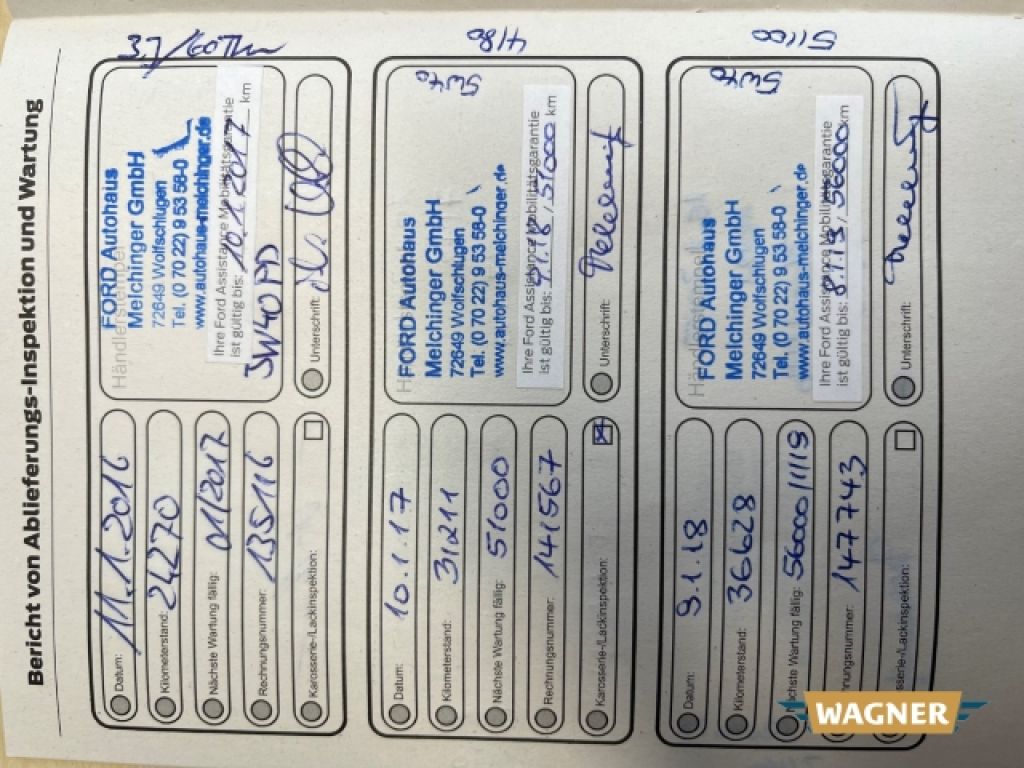 Bericht von Ablieferungs-Inspektion und Wartung
Datum: 11.1.2016
Kilometerstand: 24270
Nächste Wartung fällig: 01/2017
Rechnungsnummer: 135116
Karosserie-/Lackinspektion:
Händlerstempel
FORD Autohaus
Melchinger GmbH
72649 Wolfschlugen
Tel. (0 70 22) 9 53 58-0
www.autohaus-melchinger.de
Ihre Ford Assistance Mobilitätsgarantie
ist gültig bis: 10.1.2017 km
5W40PD
Unterschrift:
Datum: 10.1.17
Kilometerstand: 31211
Nächste Wartung fällig: 51000
Rechnungsnummer: 141567
Karosserie-/Lackinspektion:
41180
5W40
FORD Autohaus
Melchinger GmbH
72649 Wolfschlugen
Tel. (0 70 22) 9 53 58-0
www.autohaus-melchinger.de
Ihre Ford Assistance Mobilitätsgarantie
ist gültig bis: 9.1.18 / 51000 km
Unterschrift:
Datum: 9.1.18
Kilometerstand: 36628
ächste Wartung fällig: 56000 / 1/19
nungsnummer: 147743
sserie-/Lackinspektion:
51100
5W40
Händlerstempel
FORD Autohaus
Melchinger GmbH
72649 Wolfschlugen
Tel. (0 70 22) 9 53 58-0
www.autohaus-melchinger.de
Ihre Ford Assistance Mobilitätsgarantie
ist gültig bis: 8.1.19 / 56000 km
Unterschrift:
WAGNER